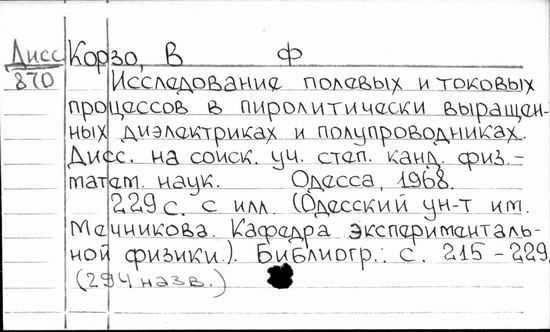 Дисс Корзо, В Ф
870 Исследование полевых и токовых
процессов в пиролитически выращен-
ных диэлектриках и полупроводниках.
Дисс. на соиск. уч. степ. канд. физ.-
матем. наук. Одесса, 1968.
229 с. с илл. (Одесский ун-т им.
Мечникова. Кафедра эксперименталь-
ной физики.). Библиогр.: с. 215-229
(294 назв.)